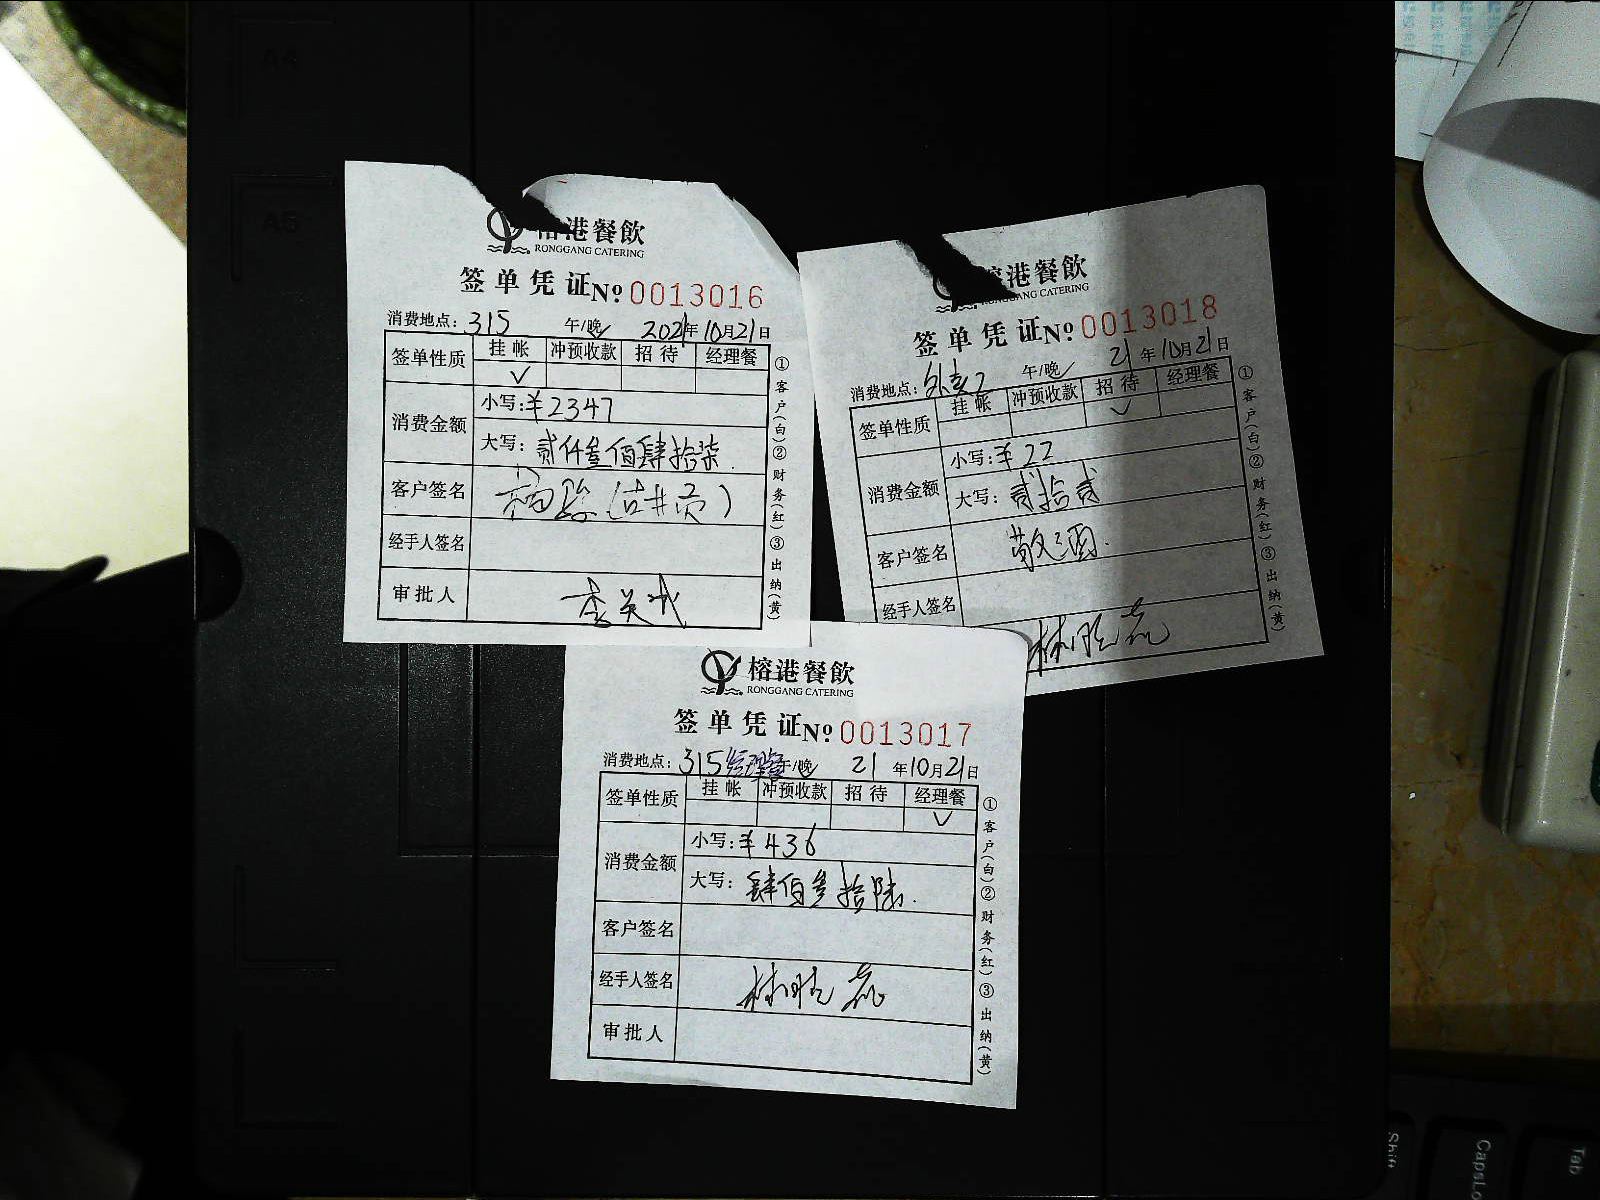 榕港餐飲
RONGGANG CATERING
签单凭证 No 0013016
消费地点：315 午/晚 2021年10月21日
签单性质 挂帐 冲预收款 招待 经理餐
✓
消费金额 小写：¥2347
大写：贰仟叁佰肆拾柒
客户签名
经手人签名
审批人
①客户(白)②财务(红)③出纳(黄)
榕港餐飲
RONGGANG CATERING
签单凭证 No 0013018
消费地点： 午/晚 21年10月21日
签单性质 挂帐 冲预收款 招待 经理餐
✓
消费金额 小写：¥22
大写：贰拾贰
客户签名 敬酒
经手人签名
①客户(白)②财务(红)③出纳(黄)
榕港餐飲
RONGGANG CATERING
签单凭证 No 0013017
消费地点：315经理餐 午/晚 21年10月21日
签单性质 挂帐 冲预收款 招待 经理餐
✓
消费金额 小写：¥436
大写：肆佰叁拾陆
客户签名
经手人签名
审批人
①客户(白)②财务(红)③出纳(黄)
A4
A5
Shift
CapsLo
Tab